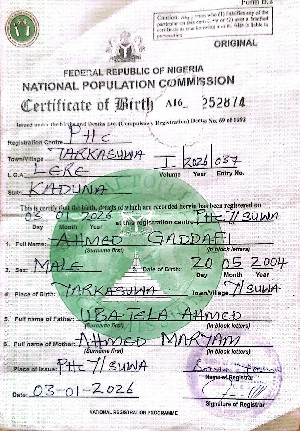 Form B.1
ORIGINAL
FEDERAL REPUBLIC OF NIGERIA
NATIONAL POPULATION COMMISSION
Certificate of Birth A16 252874
Issued under the Births and Deaths Etc. (Compulsory Registration) Decree No. 69 of 1992
Registration Centre PHC
Town/Village TARKASHWA I 2026 087
L.G.A LERE Volume Year Entry No.
State KADUNA
This is certify that the birth, details of which are recorded herein has been registered on
03 01 2026 at this registration centre PHC T/SUWA
Day Month Year
1. Full Name: AHMED GADDAFI
(Surname first) (in block letters)
2. Sex: MALE Date of Birth: 20 05 2004
Day Month Year
4. Place of Birth: TARKASUWA Town/Village T/SUWA
5. Full name of Father: UBA TELA AHMED
(Surname first) (in block letters)
6. Full name of Mother: AHMED MARYAM
(Surname first) (in block letters)
Place of Issue: PHC T/SUWA
Name of Registrar
Date: 03-01-2026
Signature of Registrar
NATIONAL REGISTRATION PROGRAMME